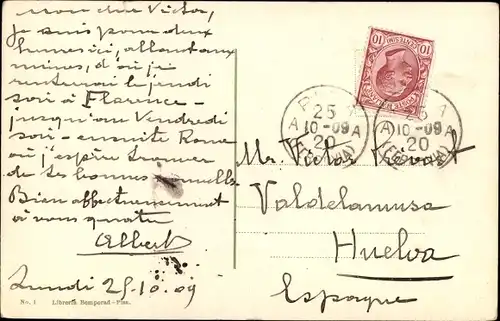 mon cher Victor,
je suis pour deux
heures ici, allant aux
mines, d'où je
rentrerai le jeudi
soir à Florence -
jusqu'au Vendredi
soir - ensuite Rome
où j'espère trouver
de tes bonnes nouvelles
Bien affectueusement
à vous quatre
Albert
Lundi 25.10.09
No. 1 Libreria Bemporad - Pisa.
10 10
PISA
25
A 10-09 A
20
25
A 10-09 A
20
Mr. Victor
Valdelamusa
Huelva
Espagne